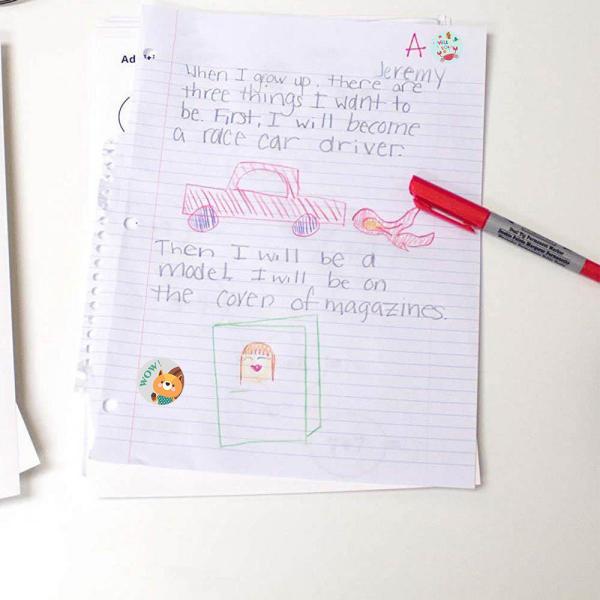 A
Ad
Jeremy
When I grow up, there are
three things I want to
be. First, I will become
a race car driver.
Then I will be a
model. I will be on
the cover of magazines.
WOW!